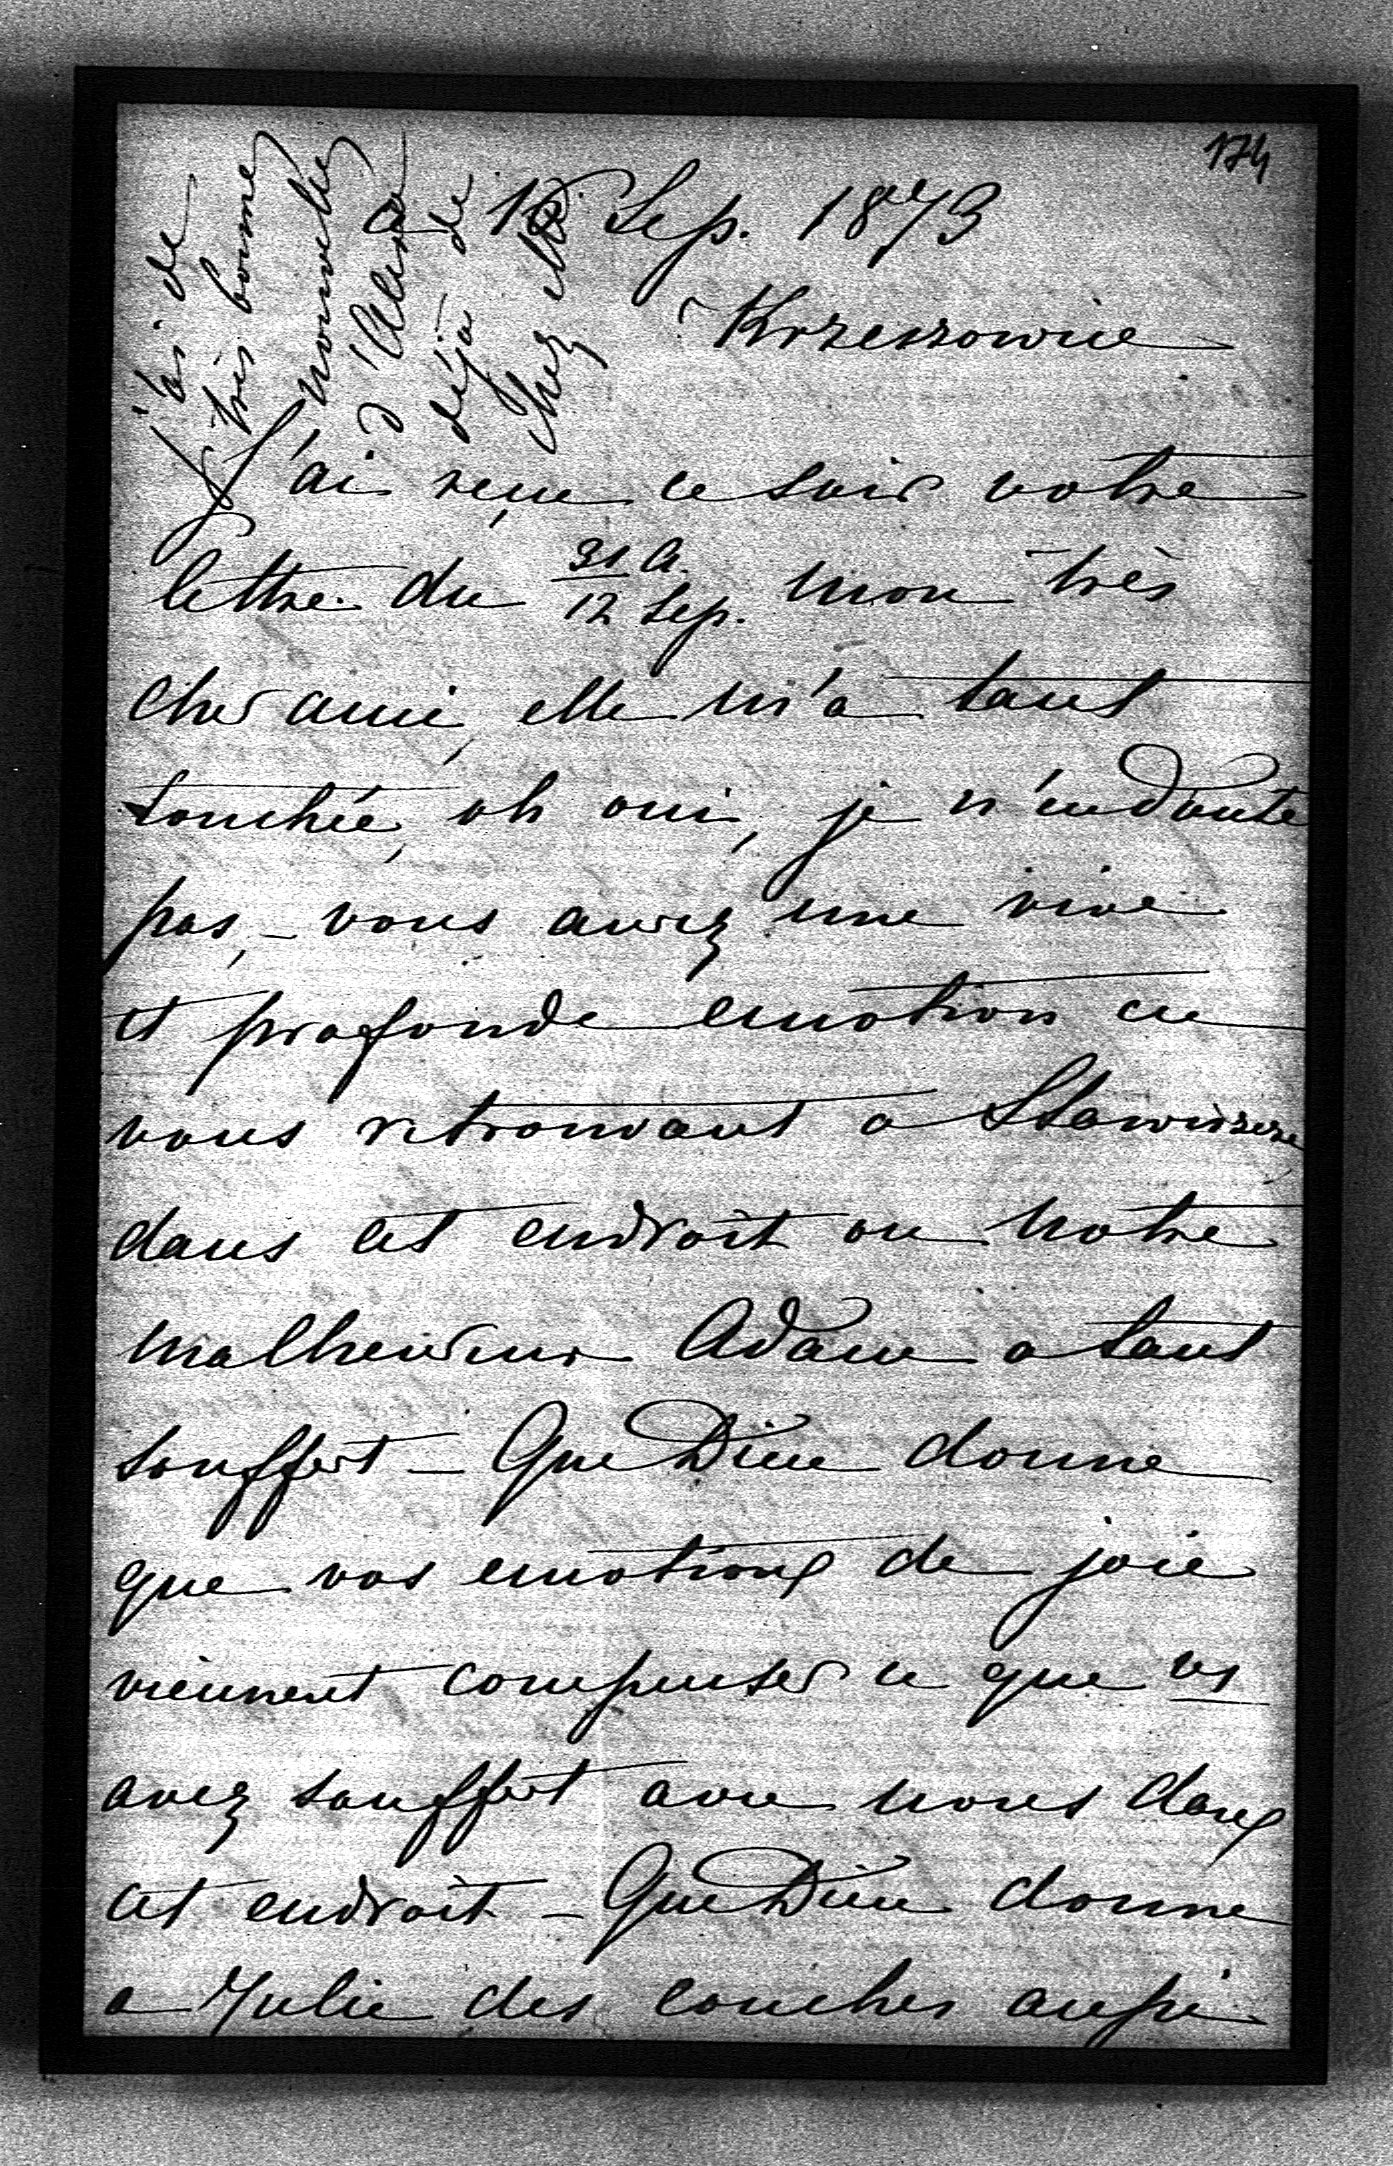 174
J'ai de
très bonne
nouvelle
d'
déjà de
chez
Sep. 1873
Krzeszowice
J'ai reçue ce soir votre
lettre du 31 A. / 12 Sep. mon très
cher ami, elle m'a tant
touchée, oh oui, je n'en doute
pas, – vous aurez une vive
et profonde emotion en
vous retrouvant a Stawiszcze,
dans cet endroit ou notre
malheureux Adam a tant
souffert – Que Dieu donne
que vos emotions de joie
viennent compenser ce que vs
avez souffert avec nous dans
cet endroit – Que Dieu donne
a Julie des couches aussi